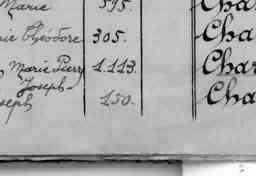 Marie 595. Cha
ie Théodore 305. Char
Marie Pierre 1.113. Char
Joseph-
seph 150. Cha